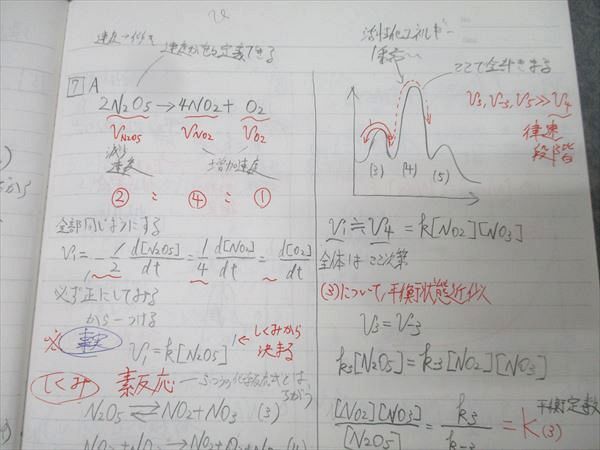 速度→何の
速度かを定義できる
7 A
2N₂O₅ → 4NO₂ + O₂
V_N₂O₅ V_NO₂ V_O₂
減少速度 増加速度
② : ④ : ①
全部同じようにする
V₁ = -1/2 d[N₂O₅]/dt = 1/4 d[NO₂]/dt = d[O₂]/dt
必ず正にしてみる
から-つける
※ 事実 V₁ = k[N₂O₅] しくみから決まる
しくみ 素反応 ふつうの化学反応式とはちがう
N₂O₅ ⇄ NO₂ + NO₃ (3)
活性化エネルギー
1番高い
ここで全部きまる
V₃, V₋₃, V₅ ≫ V₄
律速段階
(3) (4) (5)
V₁ ≒ V₄ = k[NO₂][NO₃]
全体はここ次第
(3)について, 平衡状態近似
V₃ = V₋₃
k₃[N₂O₅] = k₋₃[NO₂][NO₃]
[NO₂][NO₃]/[N₂O₅] = k₃/k₋₃ = K(3) 平衡定数